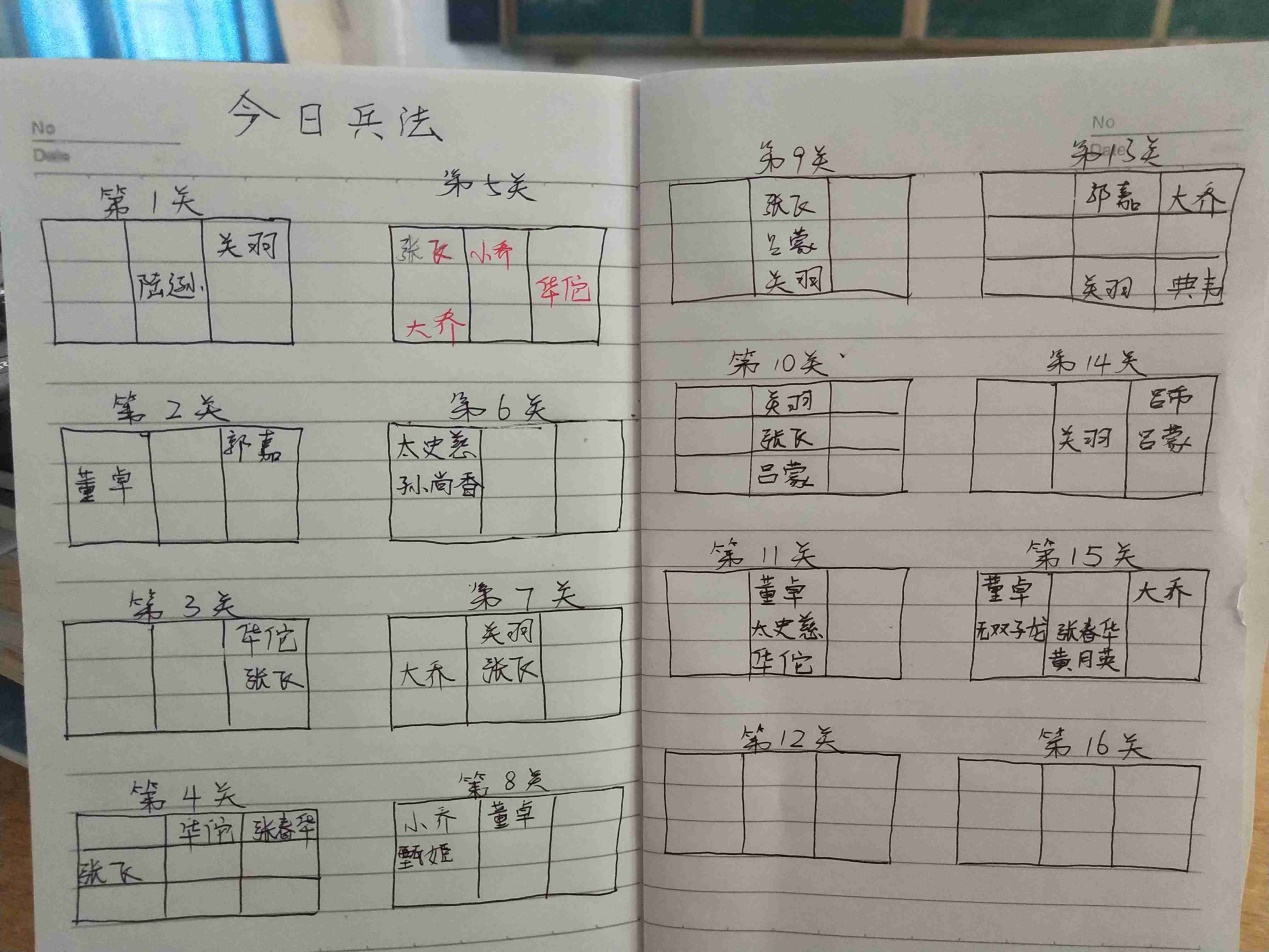 No
Date
今日兵法
第1关
关羽
陆逊
第2关
郭嘉
董卓
第3关
华佗
张飞
第4关
华佗 张春华
张飞
第5关
张飞 小乔
华佗
大乔
第6关
太史慈
孙尚香
第7关
关羽
大乔 张飞
第8关
小乔 董卓
甄姬
No
Date
第9关
张飞
吕蒙
关羽
第10关
关羽
张飞
吕蒙
第11关
董卓
太史慈
华佗
第12关
第13关
郭嘉 大乔
关羽 典韦
第14关
吕布
关羽 吕蒙
第15关
董卓 大乔
无双子龙 张春华
黄月英
第16关